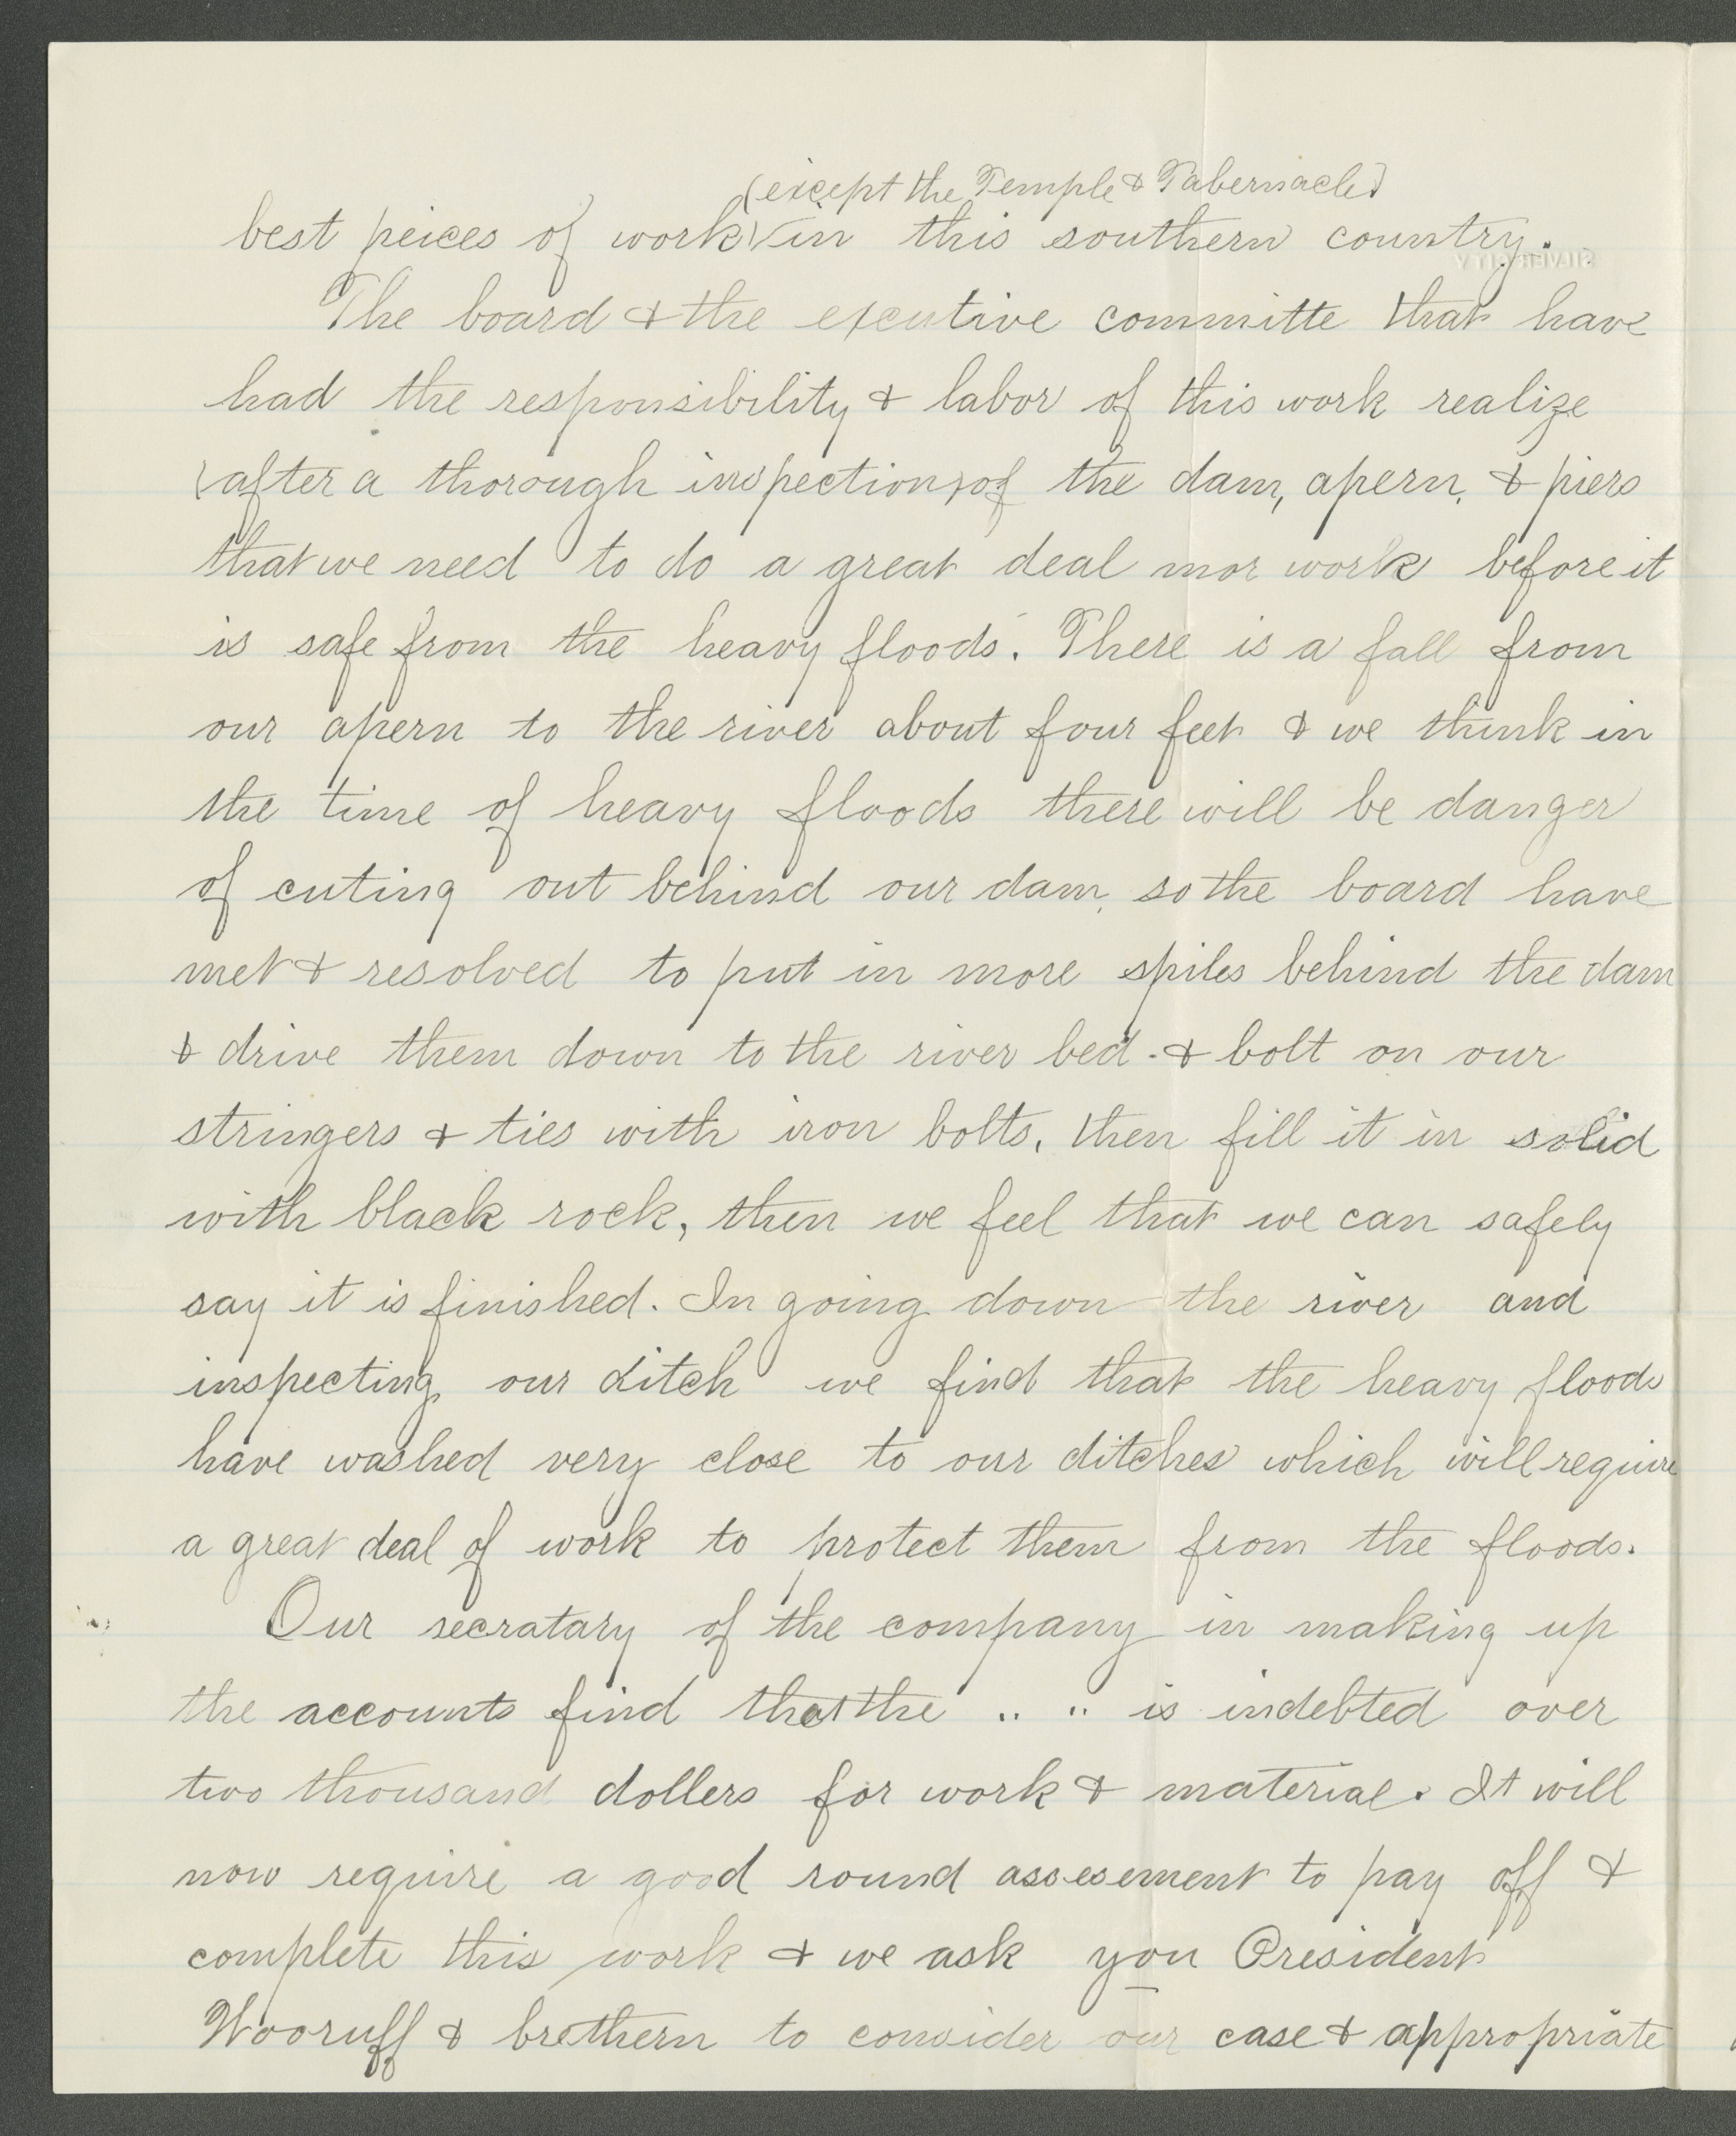 (except the Temple & Tabernacle)
best peices of work in this southern country.
The board & the excutive committe that have
had the responsibility & labor of this work realize
(after a thorough inspection) of the dam, apern, & piers
that we need to do a great deal mor work before it
is safe from the heavy floods. There is a fall from
our apern to the river about four feet & we think in
the time of heavy floods there will be danger
of cuting out behind our dam, so the board have
met & resolved to put in more spiles behind the dam
& drive them down to the river bed. & bolt on our
stringers & ties with iron bolts, then fill it in solid
with black rock, then we feel that we can safely
say it is finished. In going down the river and
inspecting our ditch we find that the heavy floods
have washed very close to our ditches which will require
a great deal of work to protect them from the floods.
Our secratary of the company in making up
the accounts find that the " " is indebted over
two thousand dollers for work & material. It will
now require a good round assesement to pay off &
complete this work & we ask you President
Wooruff & brethern to consider our case & appropriate